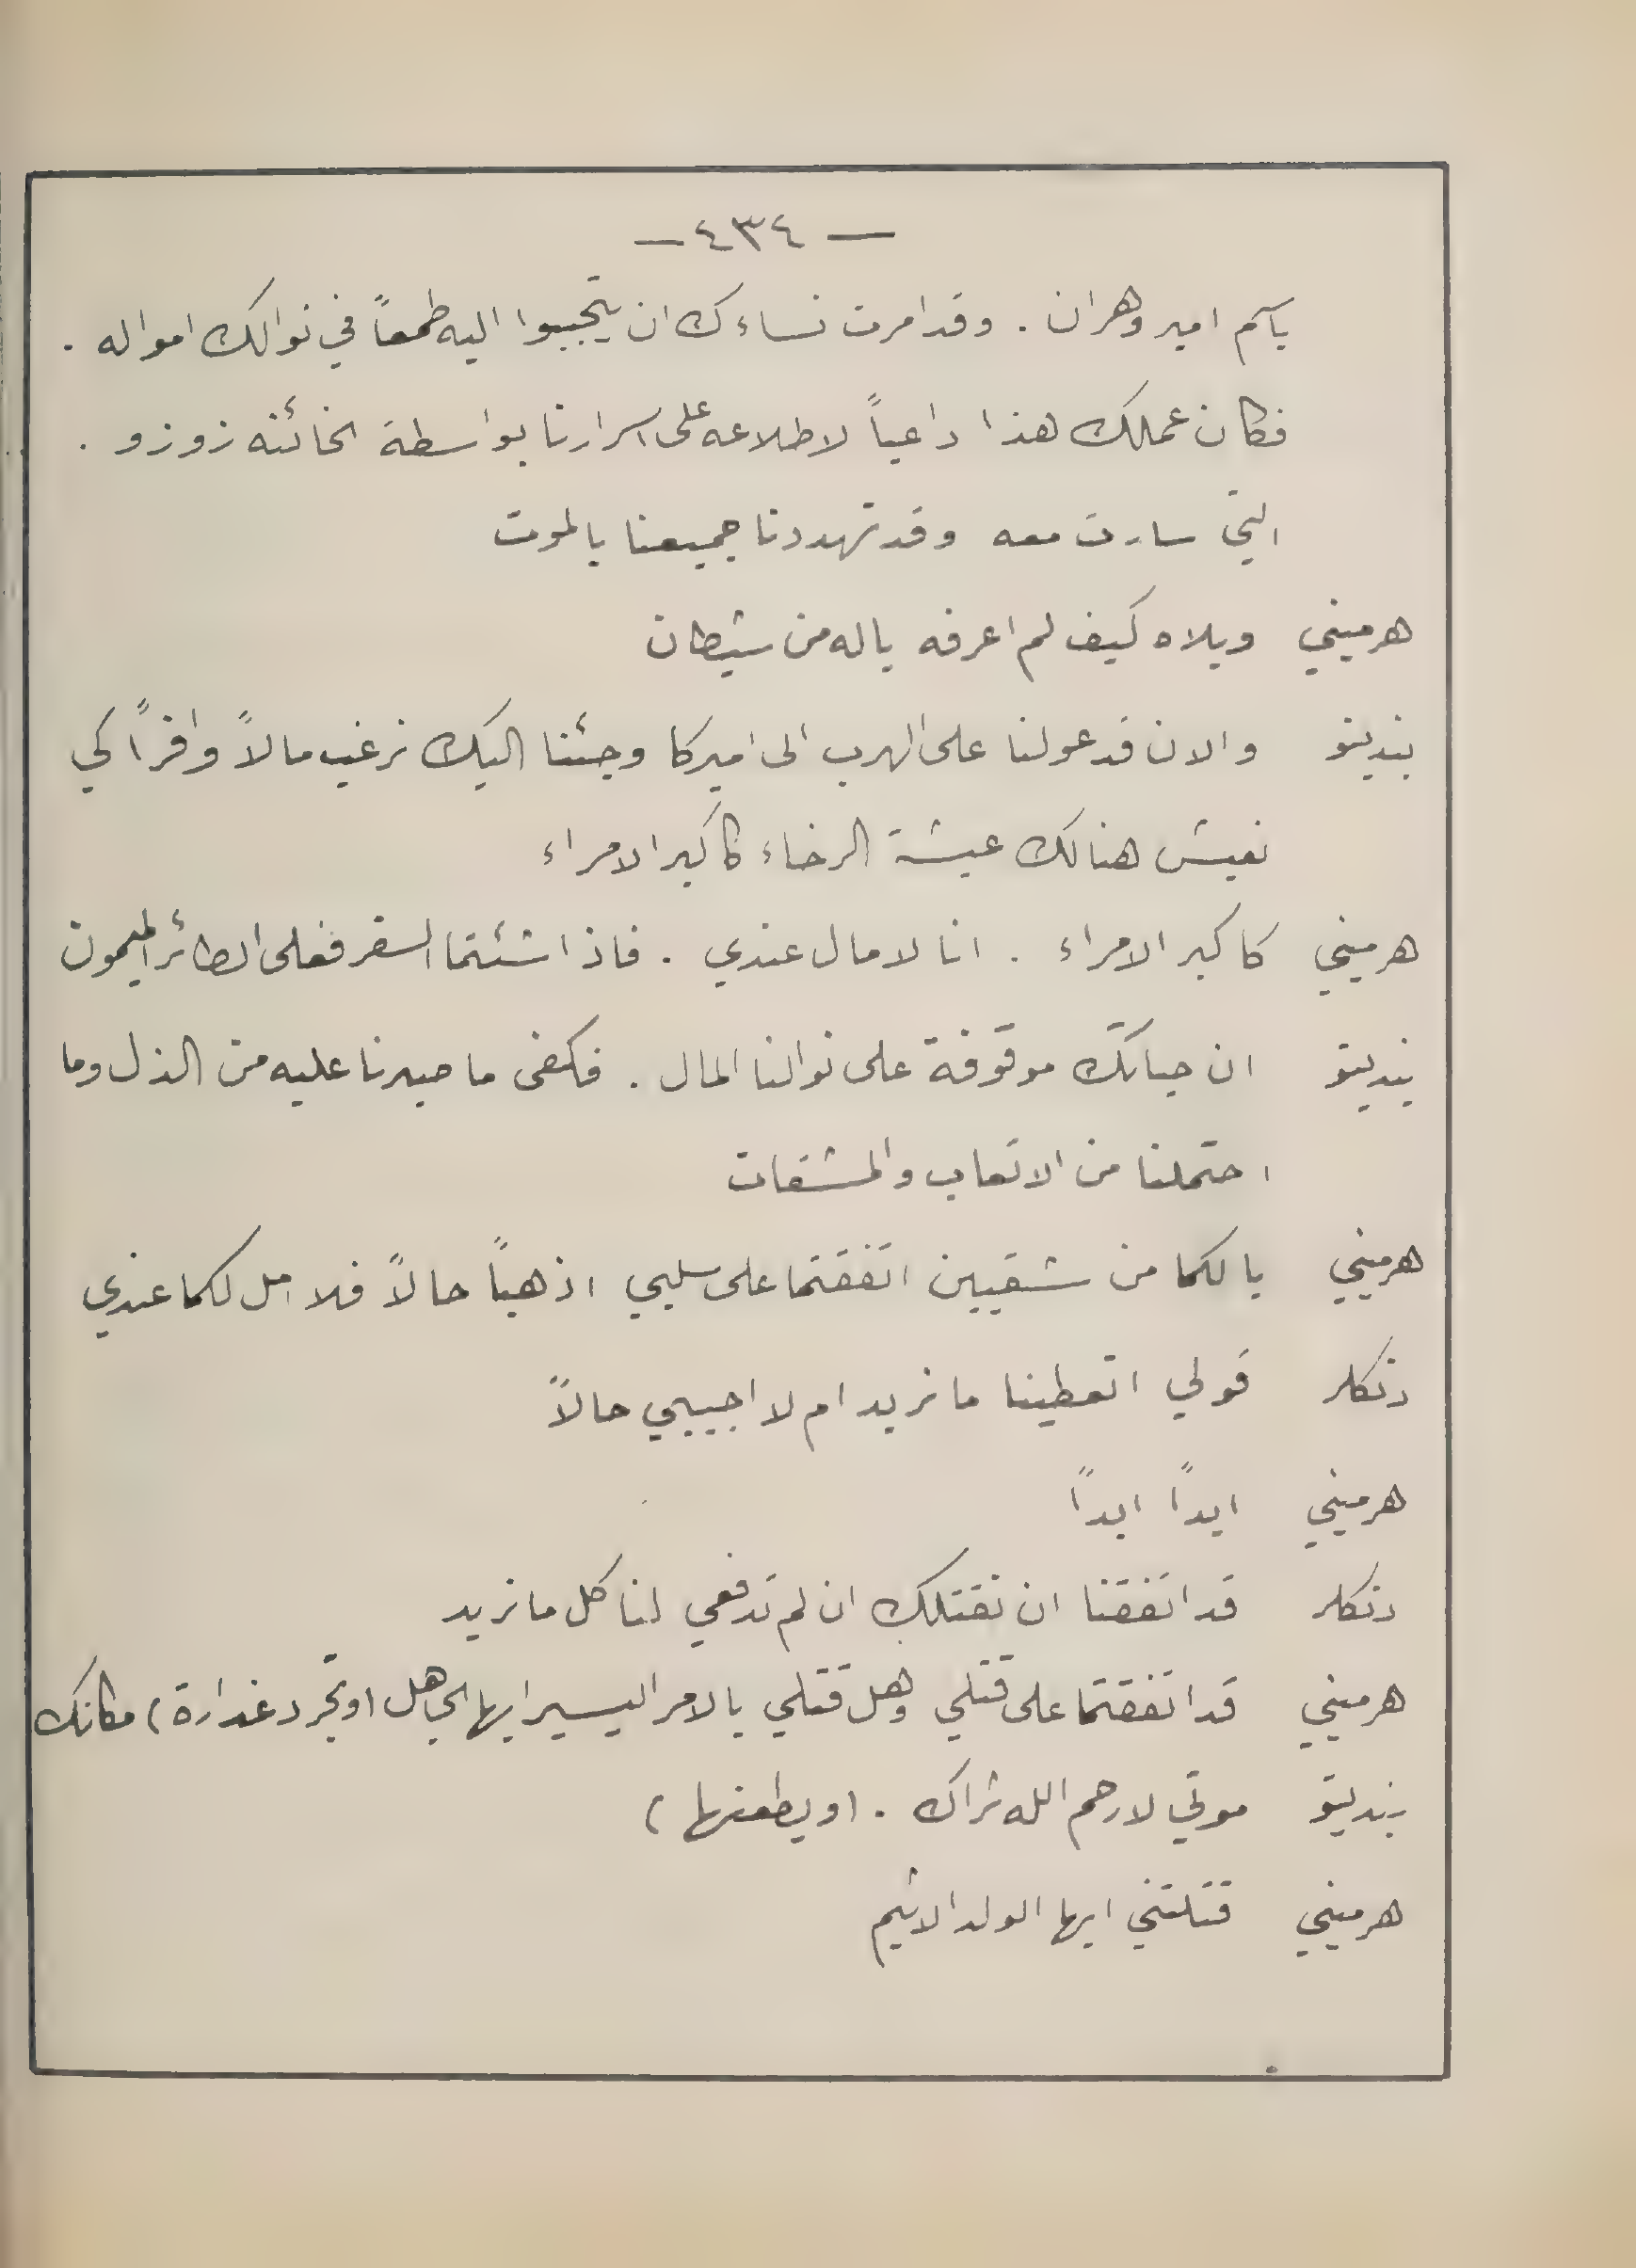 — ٤٣٤ —
باسم امير وهران . وقد امرت نساءك ان يتحببوا اليه طمعاً في نوالك امواله .
فكان عملك هذا داعياً لاطلاعه على اسرارنا بواسطة الخائنه زوزو .
التي سارت معه وقد تهددنا جميعنا بالموت
هرميني ويلاه كيف لم اعرفه ياله من شيطان
بنديتو والان قد عولنا على الهرب الى اميركا وجئنا اليك نرغب مالاً وافراً كي
نعيش هنالك عيشة الرخاء كاكبر الامراء
هرميني كاكبر الامراء . انا لا مال عندي . فاذا شئتما السفر فعلى الطائر الميمون
بنديتو ان حياتك موقوفة على نوالنا المال . فكفى ما صبرنا عليه من الذل وما
احتملنا من الاتعاب والمشقات
هرميني يا لكما من شقيين اتفقتما على سلبي اذهبا حالاً فلا امل لكما عندي
دنكلر قولي اتعطينا ما نريد ام لا اجيبي حالاً
هرميني ابداً ابداً
دنكلر قد اتفقنا ان نقتلك ان لم تدفعي لنا كل ما نريد
هرميني قد اتفقتما على قتلي وهل قتلي بالامر اليسير ايها الجاهل (وتجرد غدارة) مكانك
بنديتو موتي لا رحم الله ثراك . (ويطعنها)
هرميني قتلتني ايها الولد الاثيم